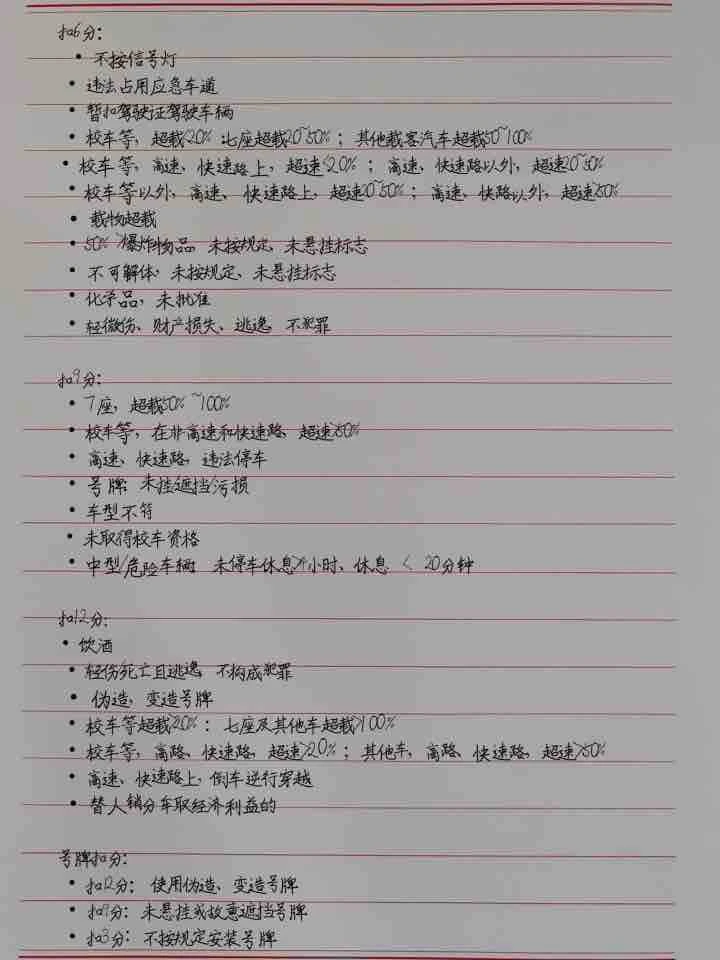 扣6分：
• 不按信号灯
• 违法占用应急车道
• 暂扣驾驶证驾驶车辆
• 校车等，超载<20%；七座超载20~50%；其他载客汽车超载50~100%
• 校车等，高速、快速路上，超速<20%；高速、快速路以外，超速20~50%
• 校车等以外，高速、快速路上，超速20~50%；高速、快路以外，超速>50%
• 载物超载
• 50%>爆炸物品，未按规定、未悬挂标志
• 不可解体，未按规定、未悬挂标志
• 化学品，未批准
• 轻微伤、财产损失、逃逸，不犯罪
扣9分：
• 7座，超载50%~100%
• 校车等，在非高速和快速路，超速>50%
• 高速、快速路，违法停车
• 号牌：未挂/遮挡/污损
• 车型不符
• 未取得校车资格
• 中型/危险车辆，未停车休息>4小时、休息 < 20分钟
扣12分：
• 饮酒
• 轻伤/死亡且逃逸，不构成犯罪
• 伪造，变造号牌
• 校车等超载>20%；七座及其他车超载>100%
• 校车等，高路、快速路，超速>20%；其他车，高路、快速路，超速>50%
• 高速、快速路上，倒车逆行穿越
• 替人销分牟取经济利益的
号牌扣分：
• 扣12分：使用伪造、变造号牌
• 扣9分：未悬挂或故意遮挡号牌
• 扣3分：不按规定安装号牌